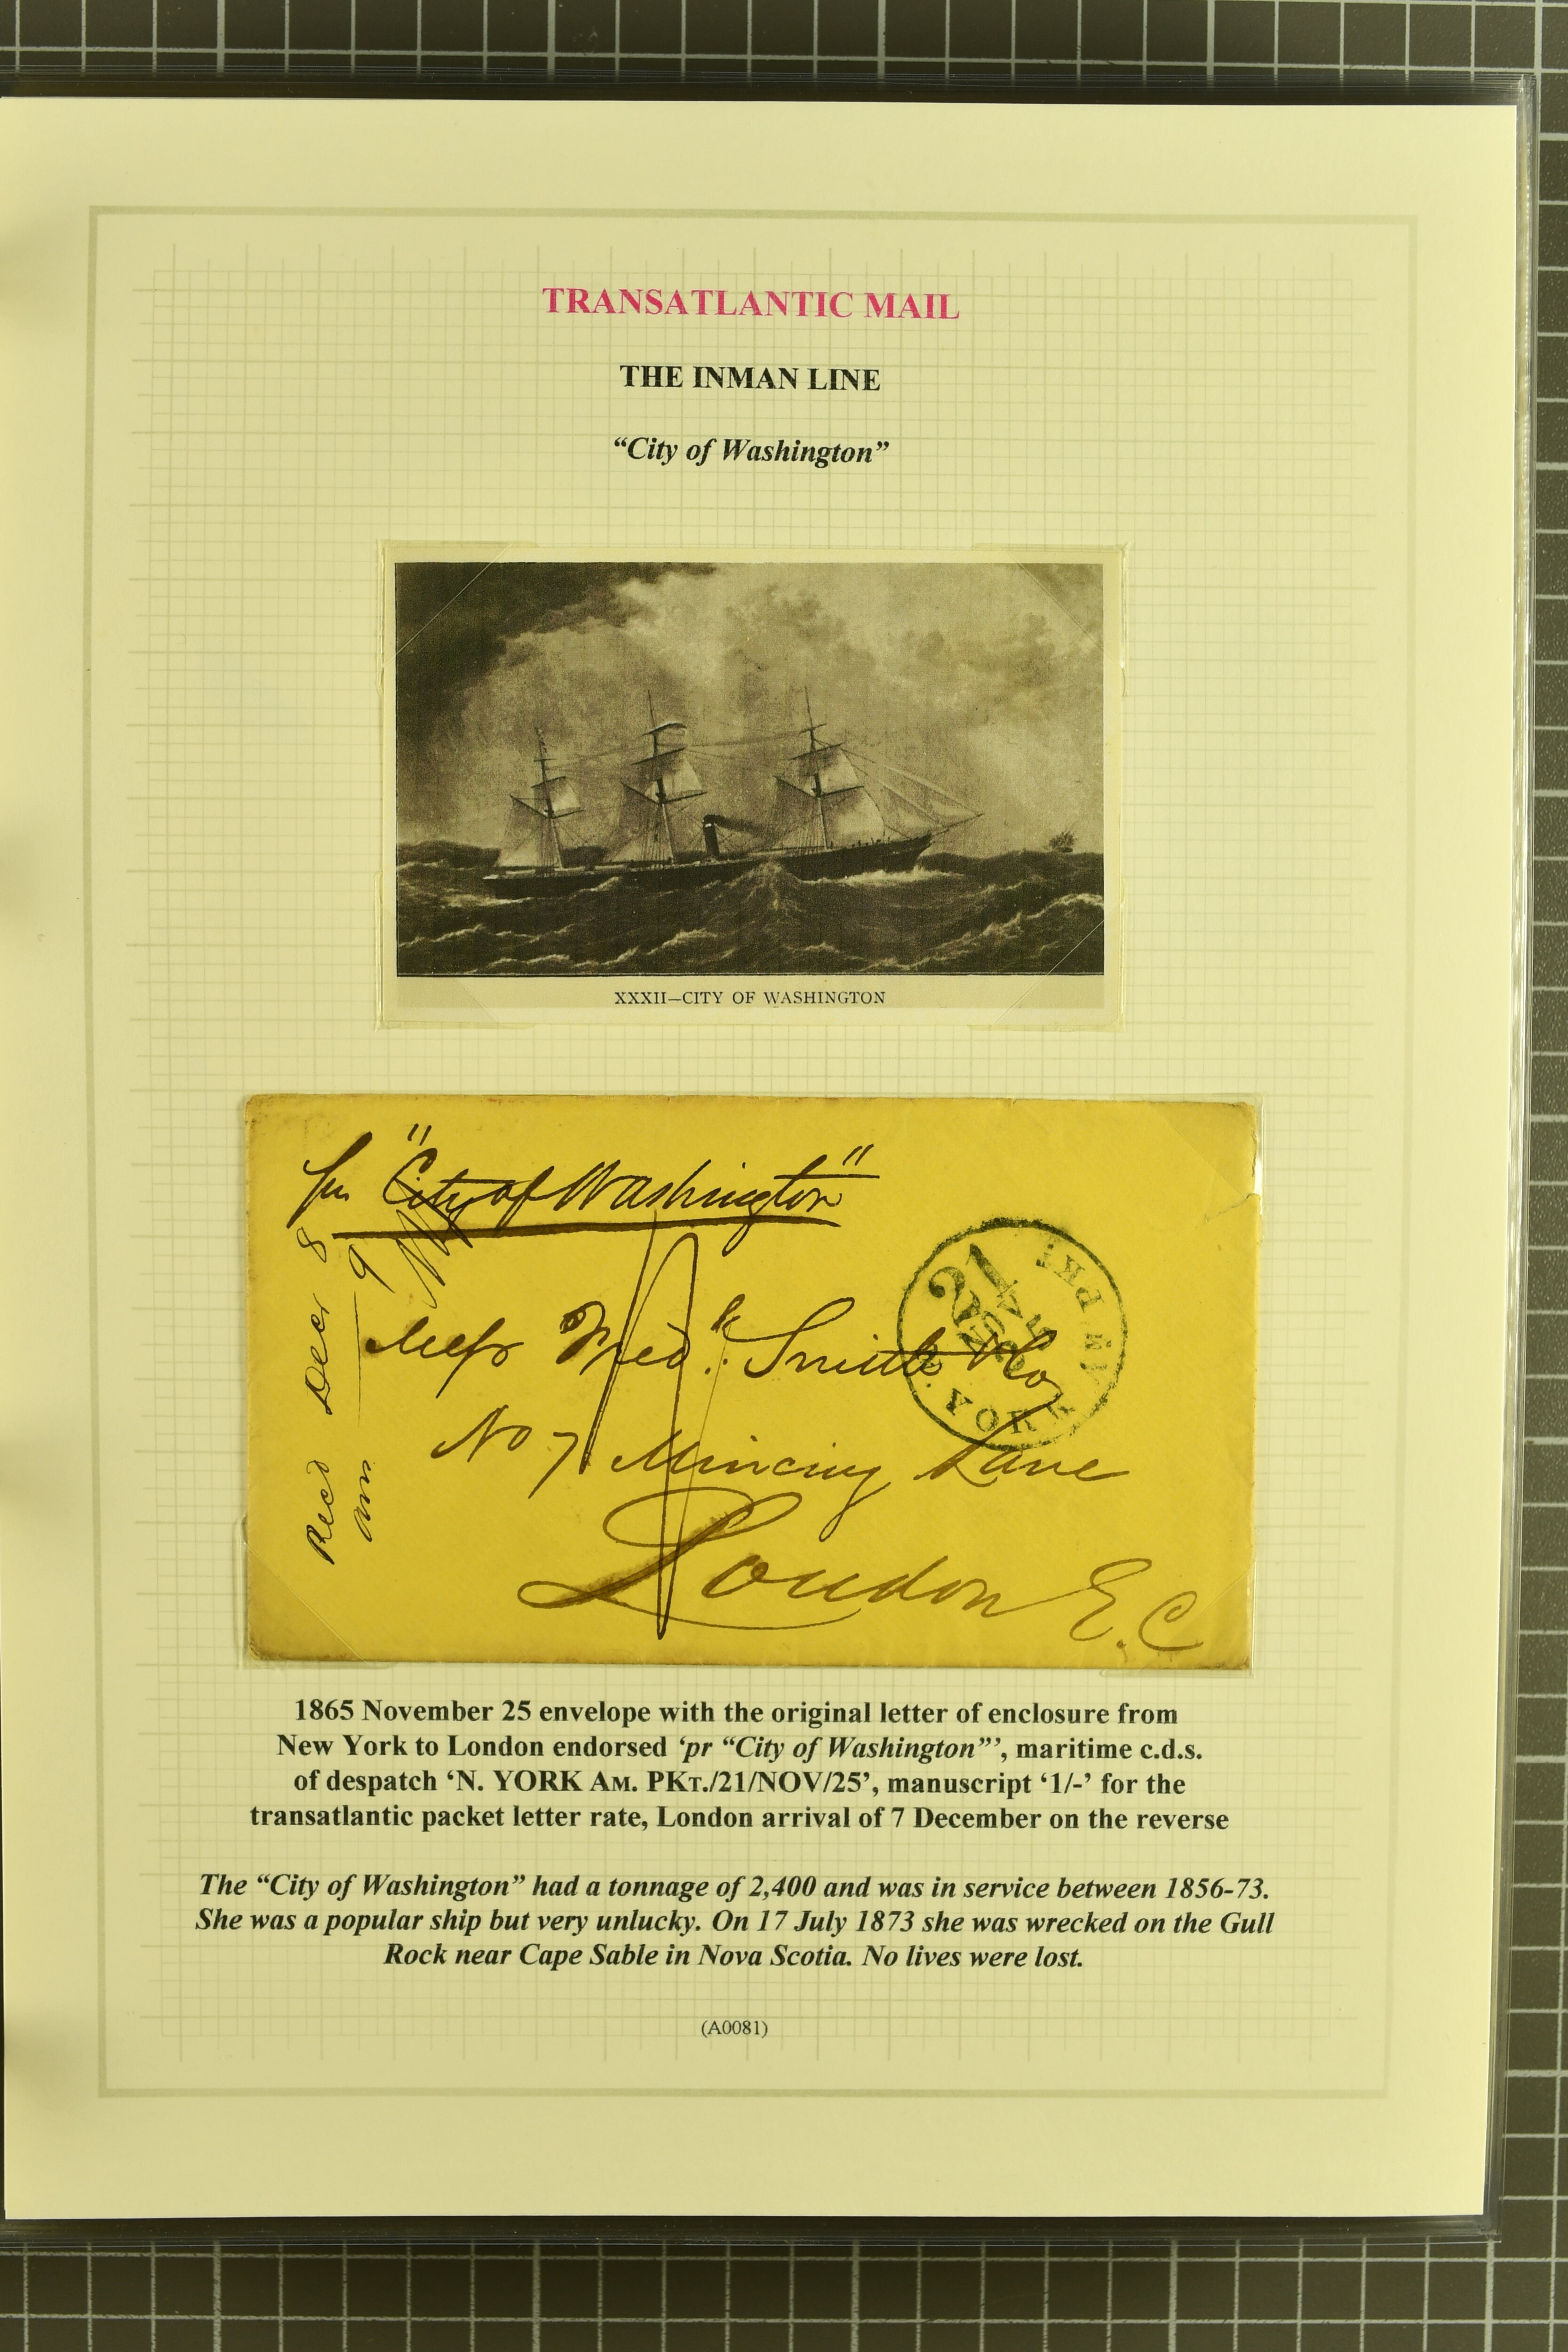 TRANSATLANTIC MAIL
THE INMAN LINE
“City of Washington”
XXXII—CITY OF WASHINGTON
pr "City of Washington"
Recd Decr 8
9
Messrs Fredk. Smith & Co
No 7 Mincing Lane
London E.C
N. YORK AM. PKT.
21
NOV
25
1865 November 25 envelope with the original letter of enclosure from
New York to London endorsed ‘pr “City of Washington”’, maritime c.d.s.
of despatch ‘N. YORK AM. PKT./21/NOV/25’, manuscript ‘1/-’ for the
transatlantic packet letter rate, London arrival of 7 December on the reverse
The “City of Washington” had a tonnage of 2,400 and was in service between 1856-73.
She was a popular ship but very unlucky. On 17 July 1873 she was wrecked on the Gull
Rock near Cape Sable in Nova Scotia. No lives were lost.
(A0081)